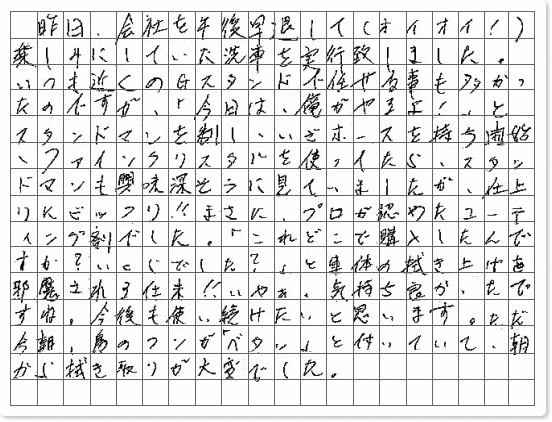 昨日、会社を午後早退して(オイオイ!)
楽しみにしていた洗車を実行致しました。
いつも近くのGスタンドで任せる事も多かっ
たのですが、「今日は、俺がやるよ!」と
スタンドマンを制し、いざホースを持ち開始
、ファインクリスタルを使っていたら、スタン
ドマンも興味深そうに見ていましたが、仕上
りにビックリ!!まさに、プロが認めたコーテ
ィング剤でした。「これどこで購入したんで
すか?いくらでした?」と車体の拭き上げを
邪魔される仕末!!いやぁ、気持ち良かったで
すね。今後も使い続けたいと思います。ただ
今朝、鳥のフンが「ベタン」と付いていて、朝
から拭き取りが大変でした。